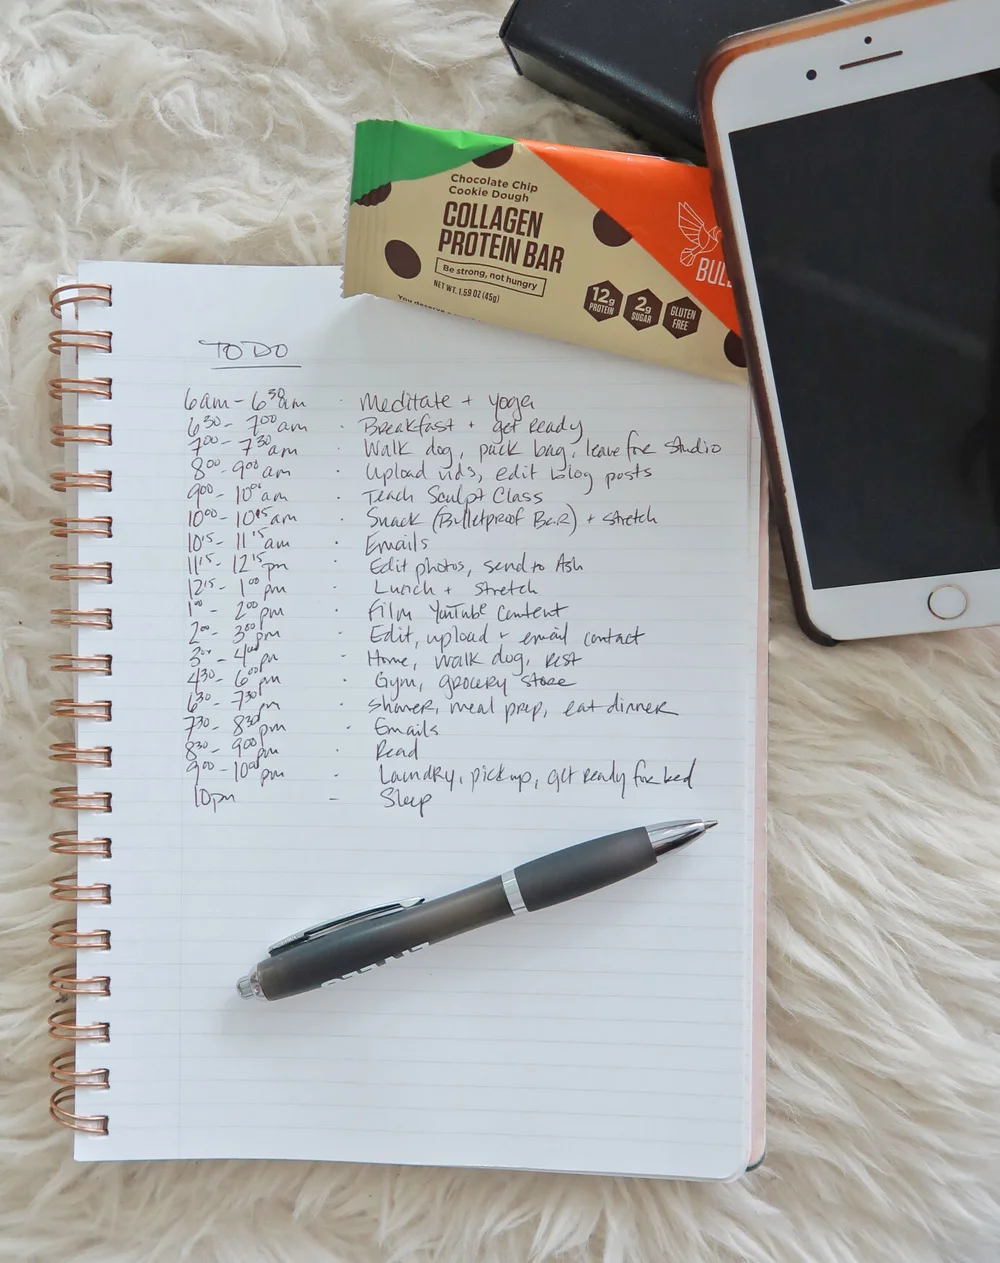 Chocolate Chip
Cookie Dough
COLLAGEN
PROTEIN BAR
Be strong, not hungry
NET WT. 1.59 OZ (45g)
12g PROTEIN
2g SUGAR
GLUTEN FREE
You deserve
BUL
TO DO
6am - 6:30am · Meditate + yoga
6:30 - 7:00am · Breakfast + get Ready
7:00 - 7:30am · Walk dog, pack bag, leave for studio
8:00 - 9:00am · Upload vids, edit blog posts
9:00 - 10:00am · Teach Sculpt Class
10:00 - 10:15am · Snack (Bulletproof Bar) + stretch
10:15 - 11:15am · Emails
11:15 - 12:15pm · Edit photos, send to Ash
12:15 - 1:00pm · Lunch + stretch
1:00 - 2:00pm · Film YouTube Content
2:00 - 3:00pm · Edit, upload + email contact
3:00 - 4:00pm · Home, walk dog, rest
4:30 - 6:00pm · Gym, grocery store
6:30 - 7:30pm · Shower, meal prep, eat dinner
7:30 - 8:30pm · Emails
8:30 - 9:00pm · Read
9:00 - 10:00pm · Laundry, pick up, get ready for bed
10pm - Sleep